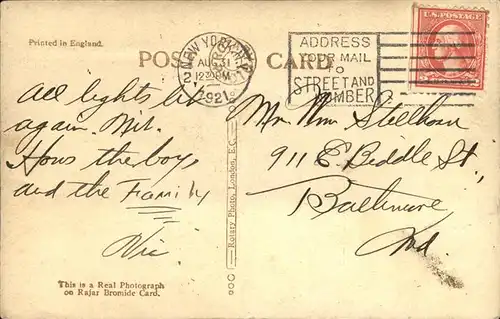 Printed in England.
POST CARD
NEW YORK, N.Y.
AUG 31
1921
ADDRESS
YOUR MAIL
TO
STREET AND
NUMBER
U.S. POSTAGE
All lights lit
again. Mil.
Hows the boys
and the Family
Vic.
Mr. Wm Stellhorn
911 E. Biddle St.,
Baltimore
Md.
Rotary Photo, London, E.C.
This is a Real Photograph
on Rajar Bromide Card.